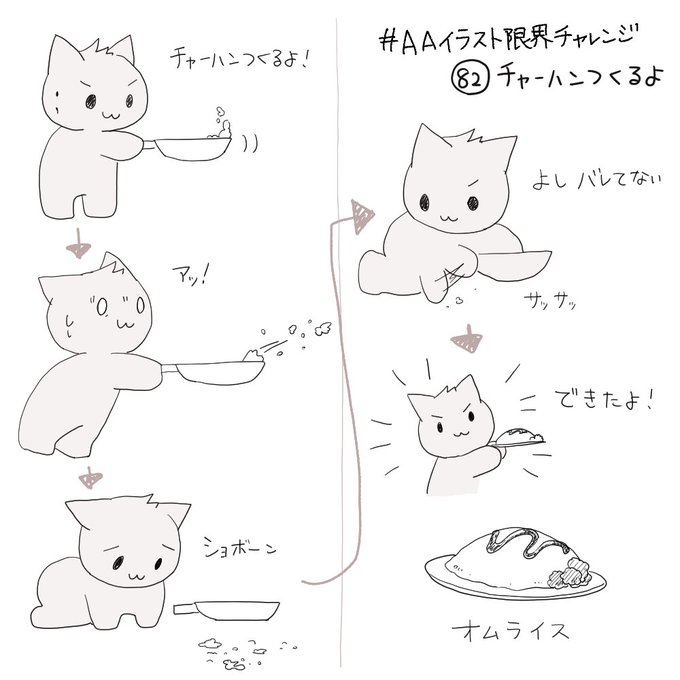 #AAイラスト限界チャレンジ
82 チャーハンつくるよ
チャーハンつくるよ!
アッ!
ショボーン
よし バレてない
サッサッ
できたよ!
オムライス